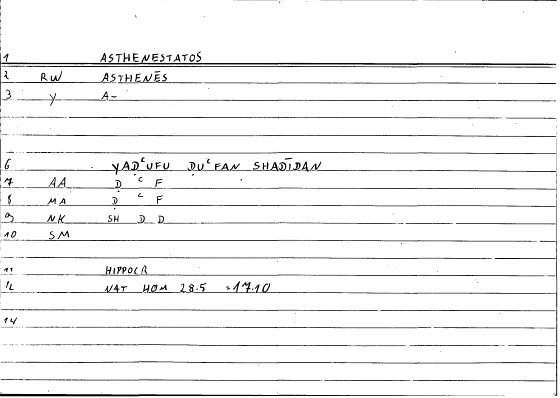 1 ASTHENESTATOS
2 RW ASTHENĒS
3 Y A-
6 YAḌʿUFU ḌUʿFAN SHADĪDAN
7 AA Ḍ ʿ F
8 MA Ḍ ʿ F
9 NK SH D D
10 SM
11 HIPPOCR
12 NAT HOM 28.5 =17.10
14